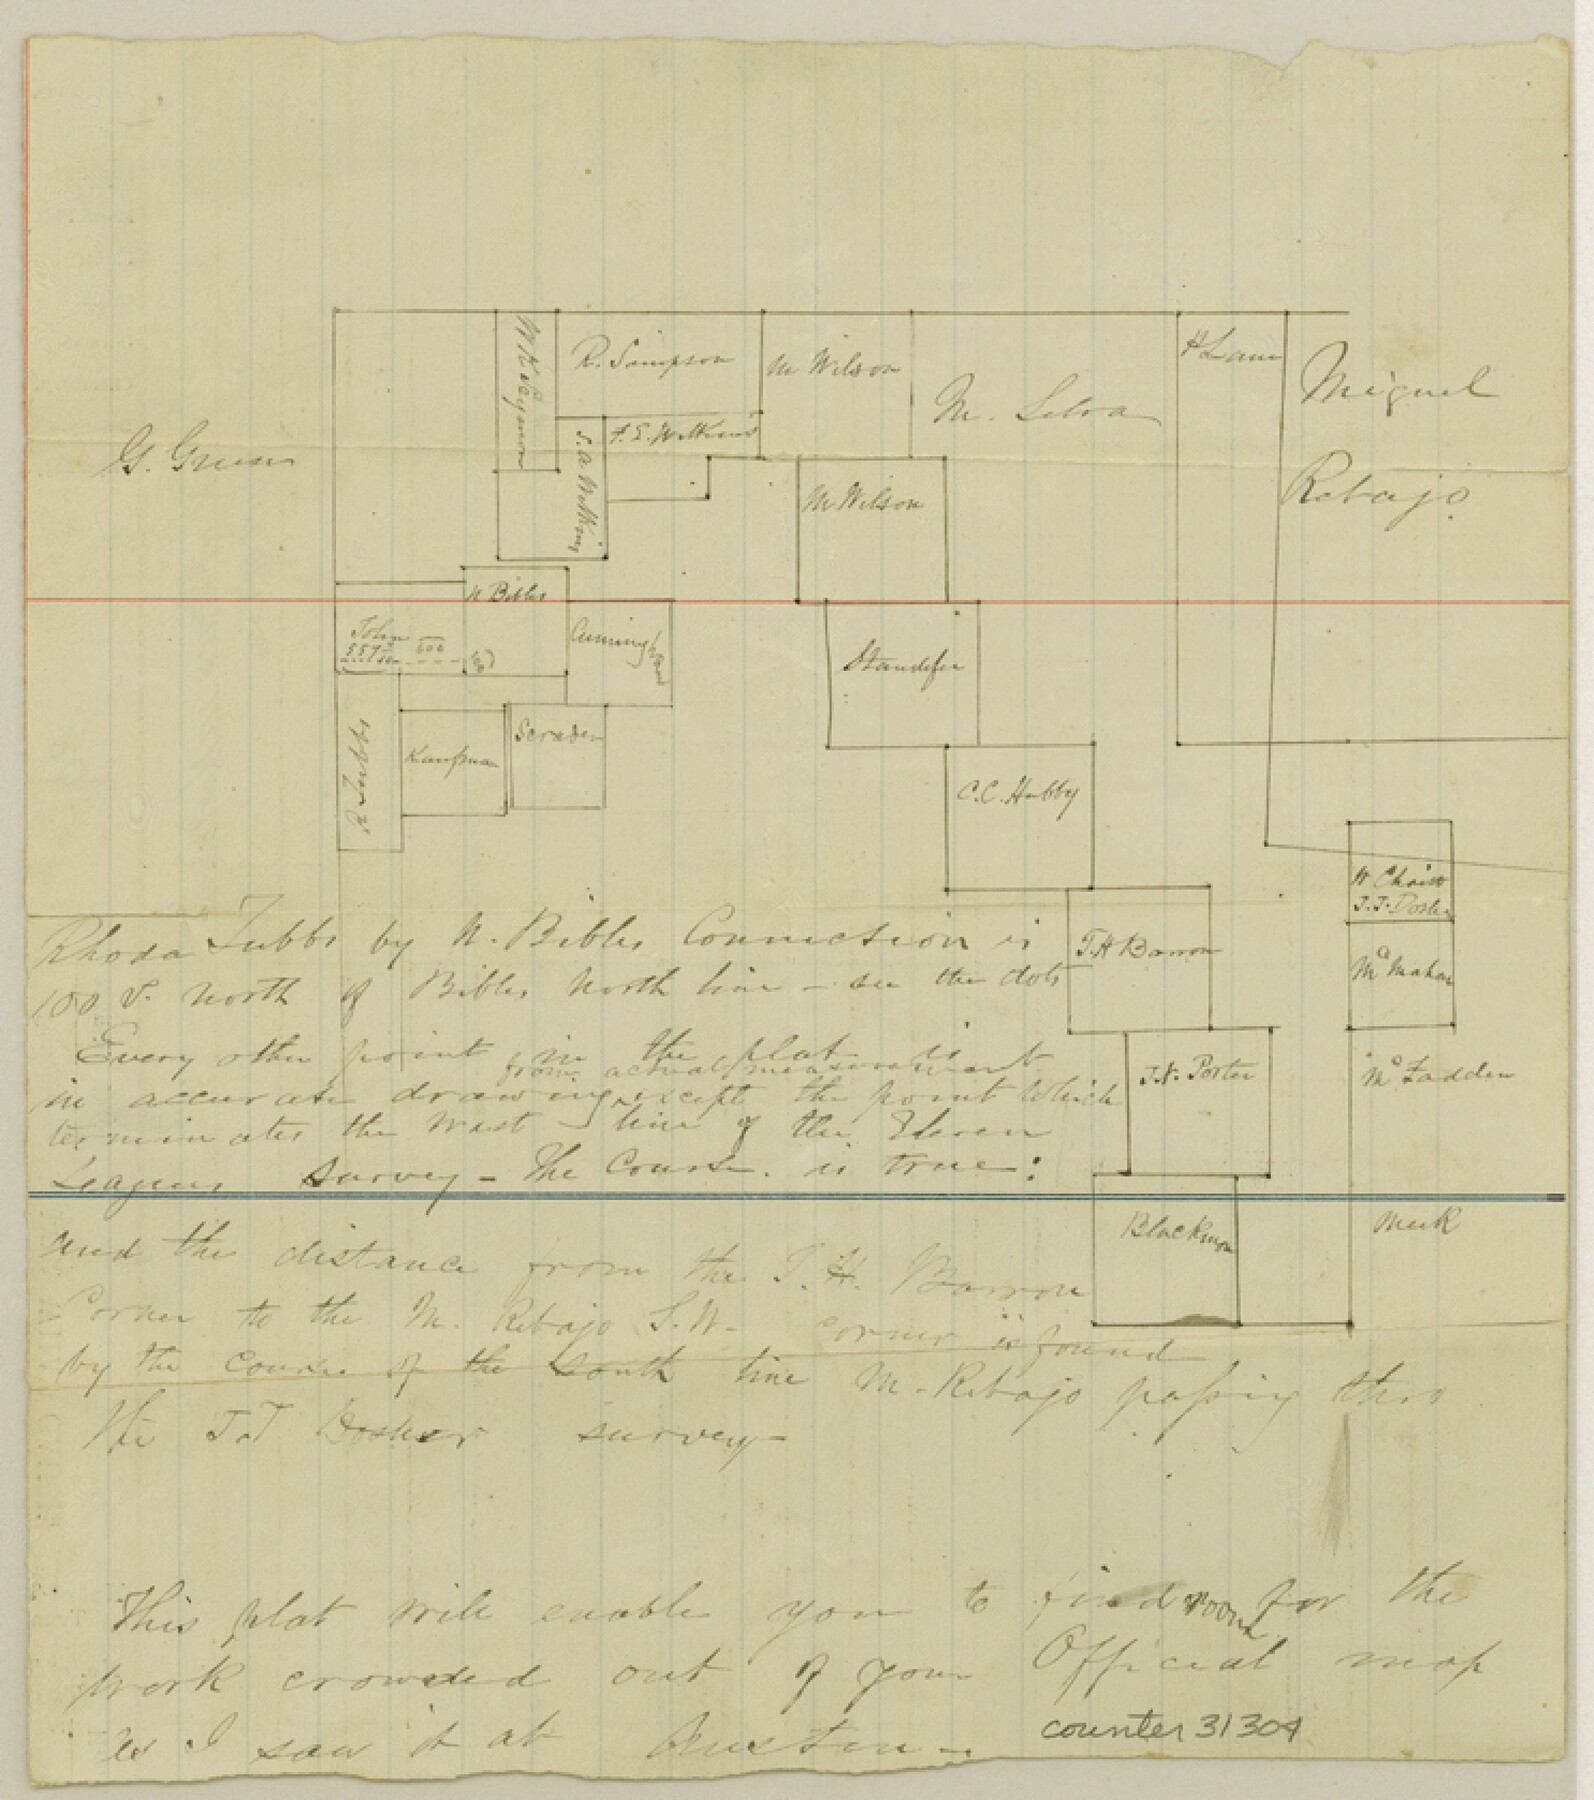 W K Seymour
R. Simpson
M Wilson
M. Silva
H Lane
Miguel
Rebajo
G. Green
F. E. Watkins
S. A Watkins
M Wilson
N Bibles
John
557 600
Cunningham
Standifer
R Tubbs
Kaufman
Scraden
C.C. Hubby
W Christ
T.J. Dosher
T. H Barron
Mc Mahan
J. N. Porter
Mc Fadden
Blackmon
Meek
Rhoda Tubbs by N. Bibles Connection is
100 v. North of Bibles North line - see the dots
Every other point in the plat is
from actual measurement
in accurate drawing except the point which
terminates the West line of the Eleven
Leagues survey - The Course is true:
and the distance from the T. H. Barron
Corner to the M. Rebajo S.W. corner is found
by the course of the South line M. Rebajo passing thro
the J.T Dosher survey
This plat will enable you to find room for the
work crowded out of your Official map
as I saw it at Austin -
counter 31304